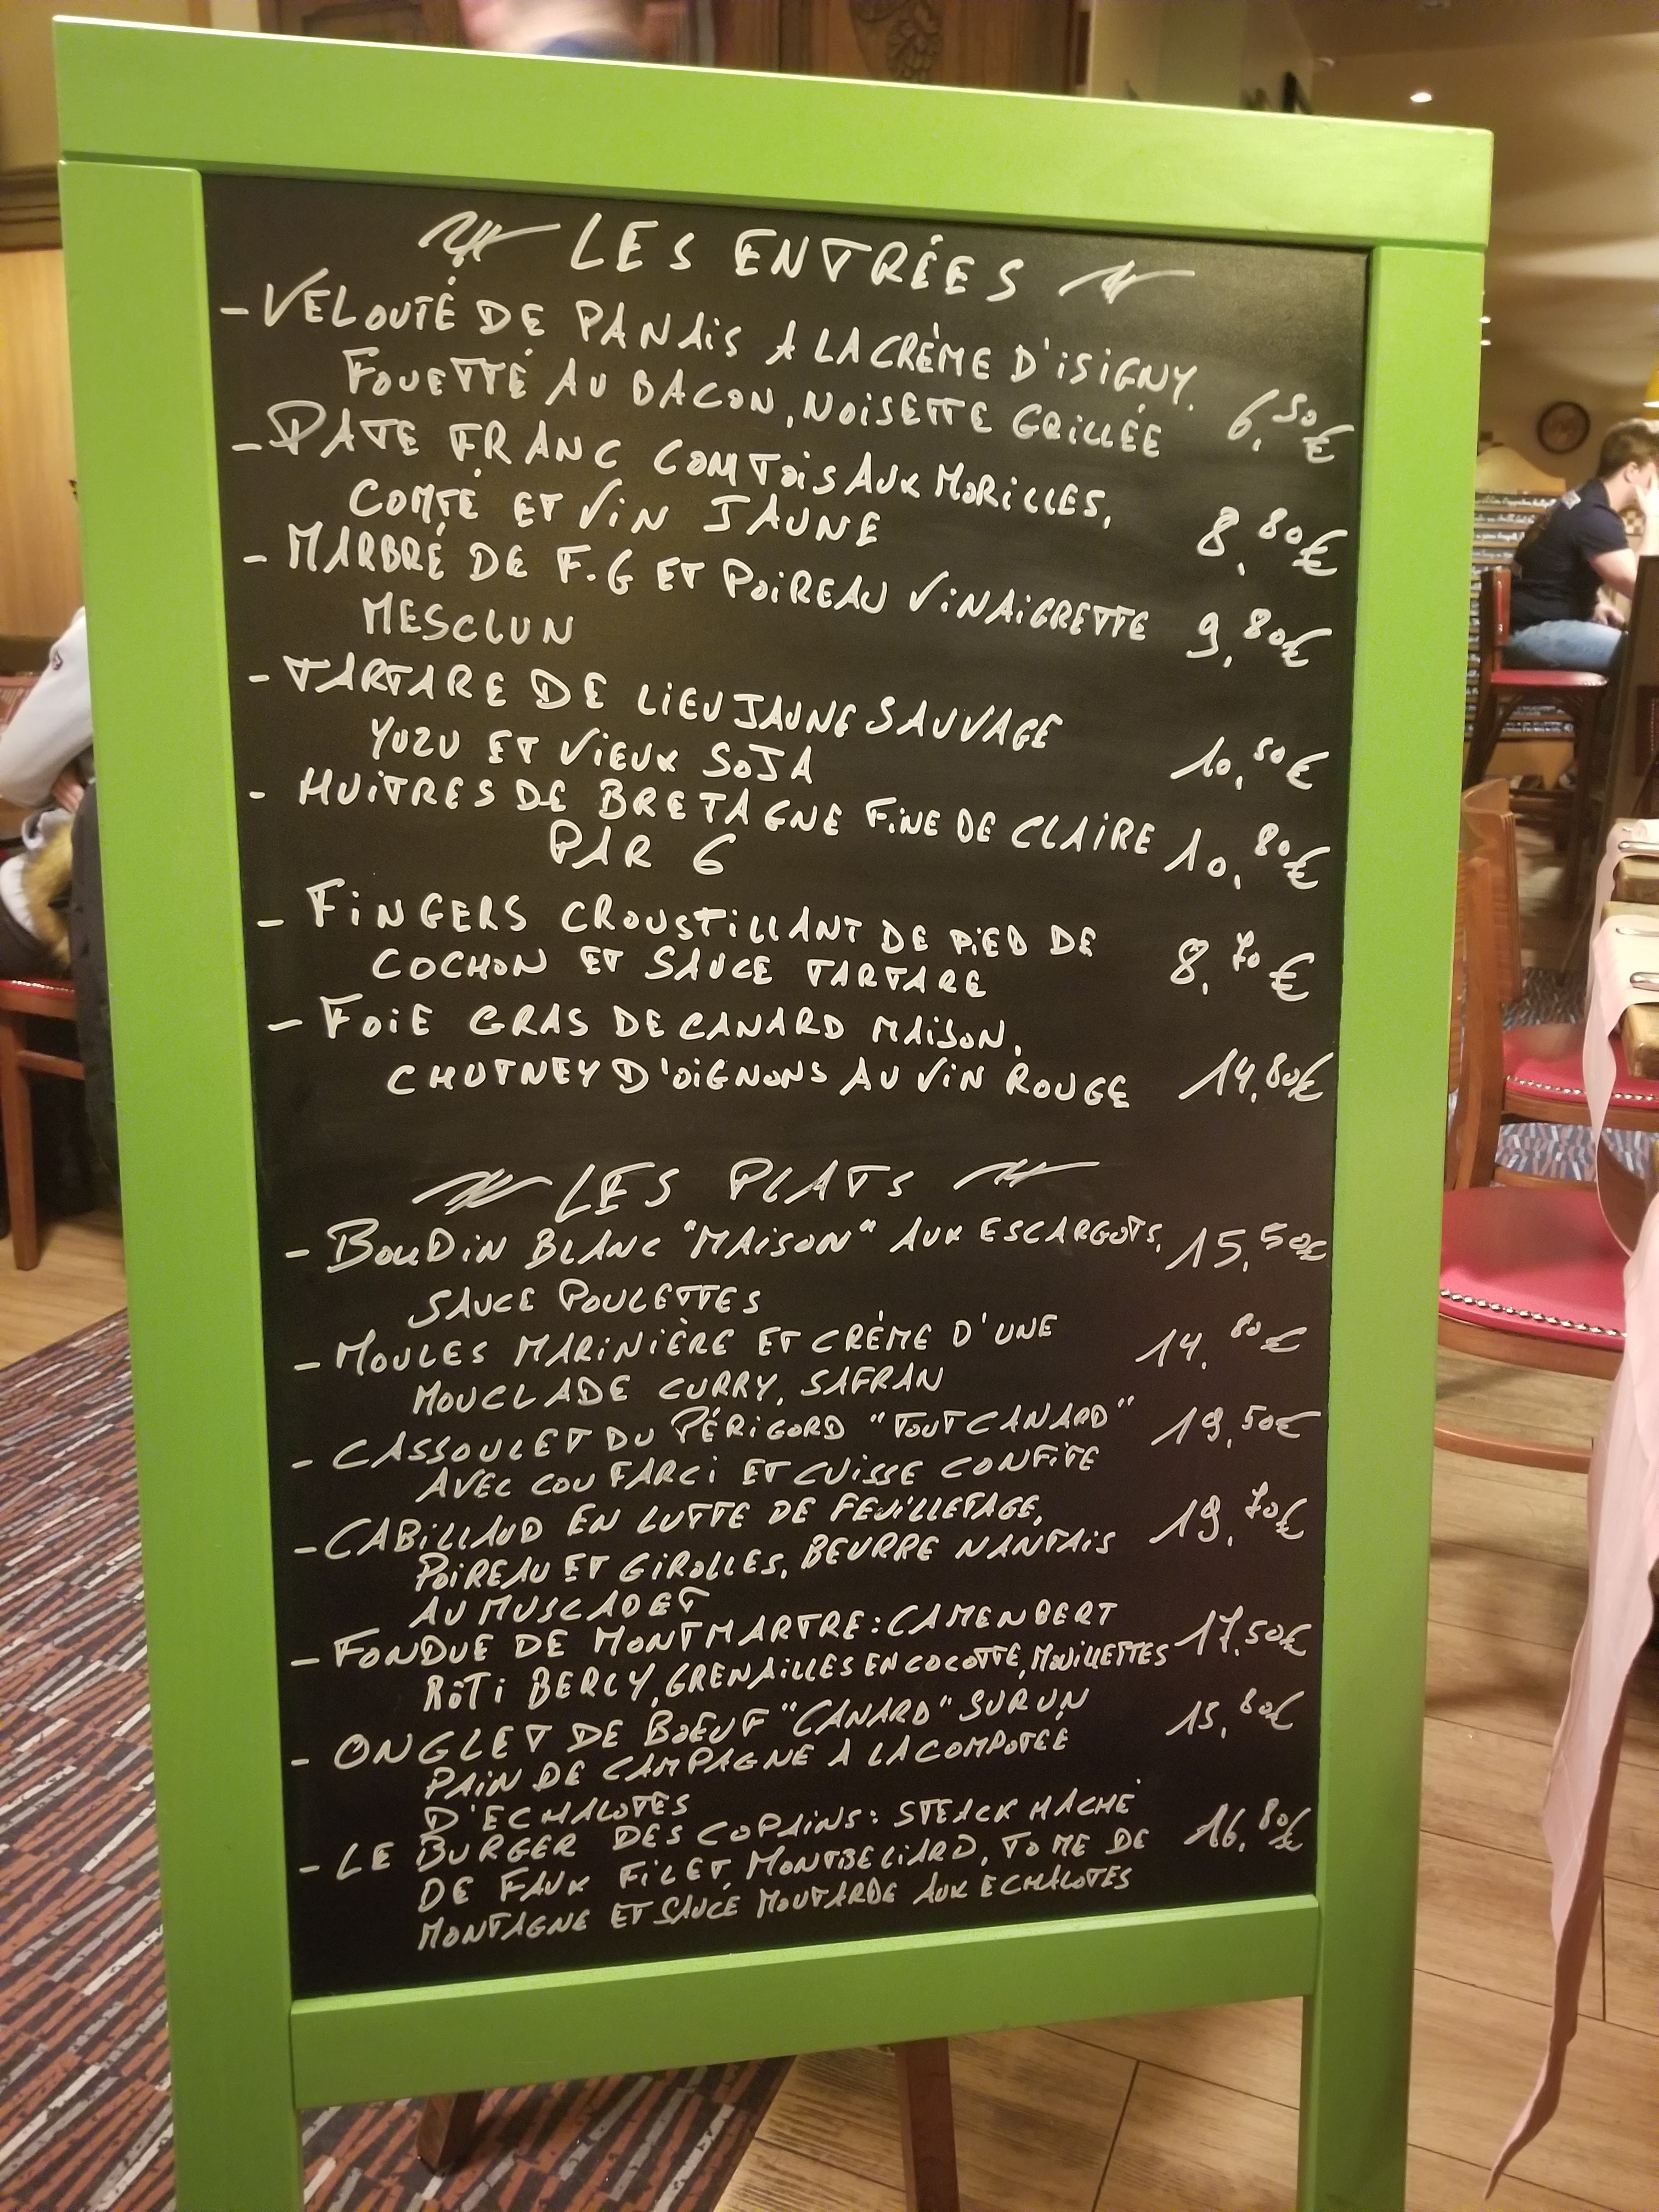 LES ENTRÉES
- VELOUTÉ DE PANAIS A LA CRÈME D'ISIGNY.
FOUETTÉ AU BACON, NOISETTE GRILLÉE 6,50€
- PATE FRANC COMTOIS AUX MORILLES,
COMTÉ ET VIN JAUNE 8,80€
- MARBRÉ DE F.G ET POIREAU VINAIGRETTE 9,80€
MESCLUN
- TARTARE DE LIEU JAUNE SAUVAGE
YUZU ET VIEUX SOJA 10,50€
- HUITRES DE BRETAGNE FINE DE CLAIRE 10,80€
PAR 6
- FINGERS CROUSTILLANT DE PIED DE
COCHON ET SAUCE TARTARE 8,70€
- FOIE GRAS DE CANARD MAISON,
CHUTNEY D'OIGNONS AU VIN ROUGE 14,80€
LES PLATS
- BOUDIN BLANC "MAISON" AUX ESCARGOTS, 15,50€
SAUCE POULETTES
- MOULES MARINIÈRE ET CRÈME D'UNE 14,80€
MOUCLADE CURRY, SAFRAN
- CASSOULET DU PÉRIGORD "TOUT CANARD" 19,50€
AVEC COU FARCI ET CUISSE CONFITE
- CABILLAUD EN LUTTE DE FEUILLETAGE, 19,70€
POIREAU ET GIROLLES, BEURRE NANTAIS
AU MUSCADET
- FONDUE DE MONTMARTRE: CAMENBERT 17,50€
RÔTI BERCY, GRENAILLES EN COCOTTE, MOUILLETTES
- ONGLET DE BOEUF "CANARD" SUR UN 15,80€
PAIN DE CAMPAGNE A LA COMPOTÉE
D'ECHALOTES
- LE BURGER DES COPAINS: STEACK HACHÉ 16,80€
DE FAUX FILET, MONTBELIARD, TOME DE
MONTAGNE ET SAUCE MOUTARDE AUX ECHALOTES